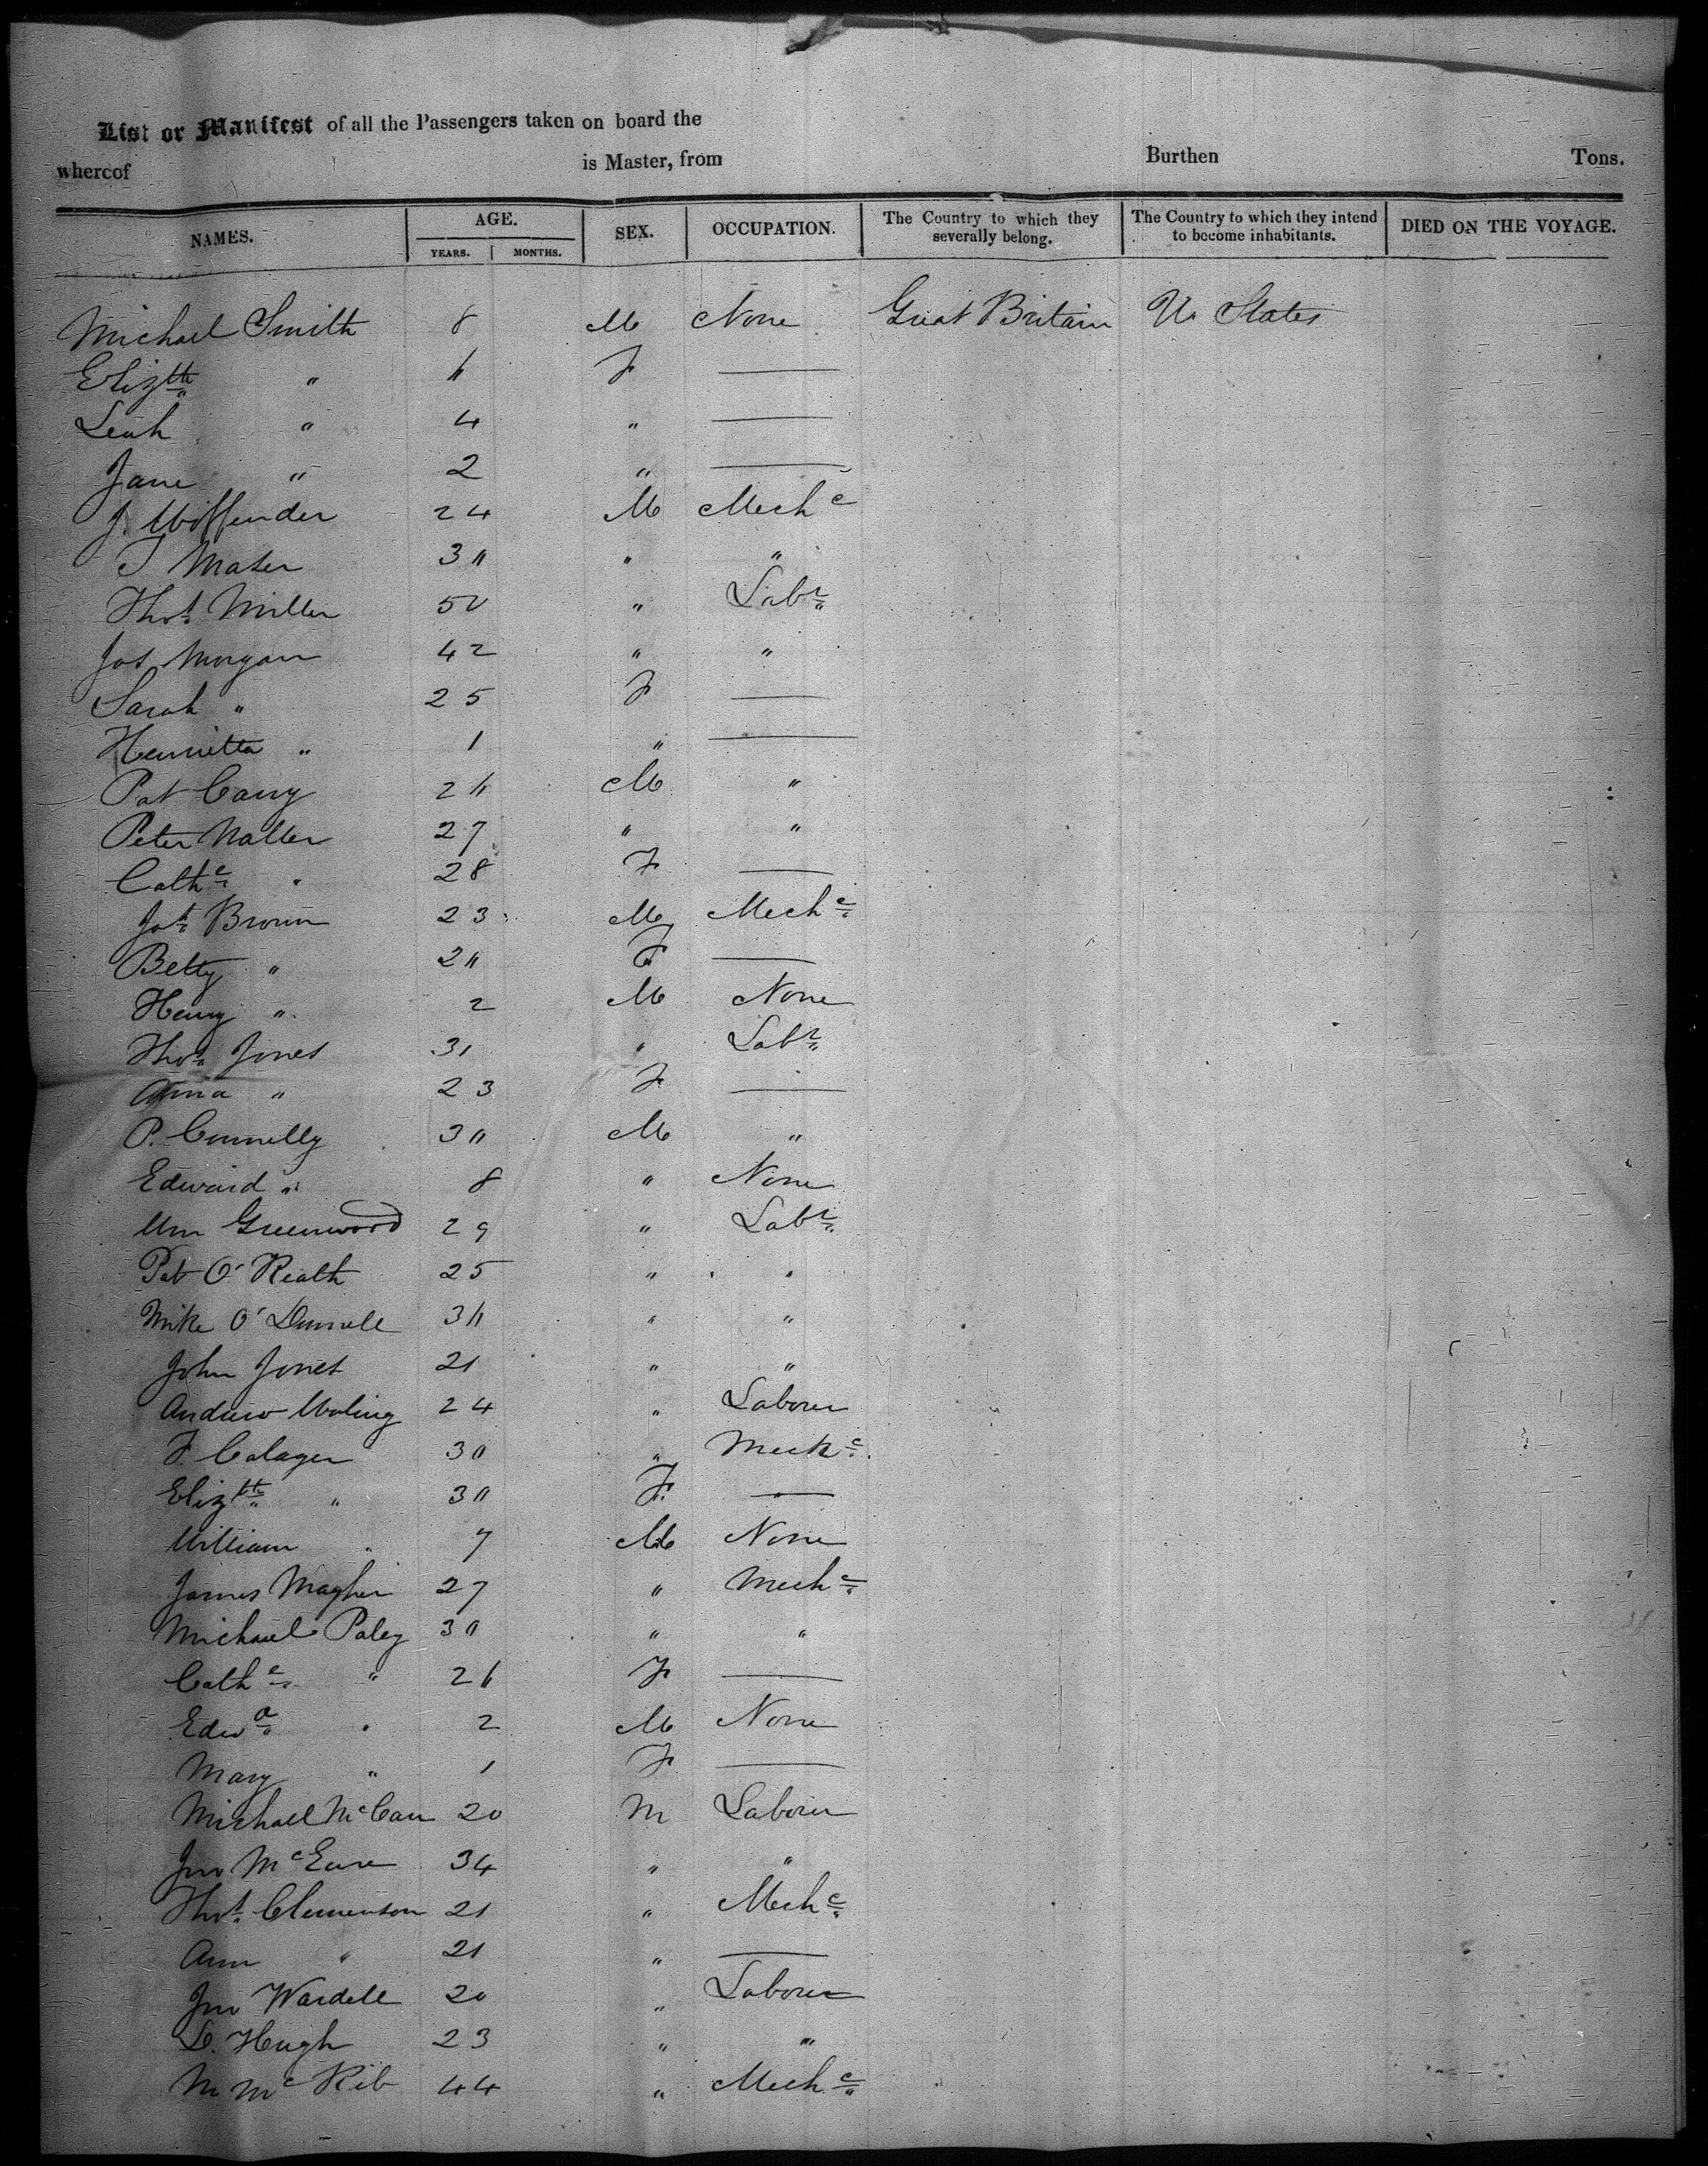 List or Manifest of all the Passengers taken on board the
whereof is Master, from Burthen Tons.
NAMES. AGE. SEX. OCCUPATION. The Country to which they severally belong. The Country to which they intend to become inhabitants. DIED ON THE VOYAGE.
YEARS. MONTHS.
Michael Smith 8 M None Great Britain U. States
Elizth " 6 F —
Leah " 4 " —
Jane " 2 " —
J. Woffender 24 M Mechc
T Mater 30 " "
Thos Miller 50 " Labr
Jos Morgan 42 " "
Sarah " 25 F —
Henrietta " 1 " —
Pat Carry 26 M "
Peter Naller 27 " "
Cathe " 28 F —
Jos Brown 23 M Mechc
Betty " 20 F —
Henry " 2 M None
Thos Jones 31 " Labr
Anna " 23 F —
P. Connelly 30 M "
Edward " 8 " None
Wm Greenwood 29 " Labr
Pat O'Realh 25 " "
Mike O'Donnell 36 " "
John Jones 21 " "
Andrew Woling 24 " Laborer
F. Colager 30 " Mechc
Elizth " 30 F —
William " 7 M None
James Magher 27 " Mechc
Michael Paley 30 " "
Cathe " 26 F —
Edwd " 2 M None
Mary " 1 F —
Michael McCan 20 M Laborer
Jno McEune 34 " "
Thos Clemenson 21 " Mechc
Ann " 21 " —
Jno Wardell 20 " Laborer
L. Hugh 23 " "
M McKib 44 " Mechc